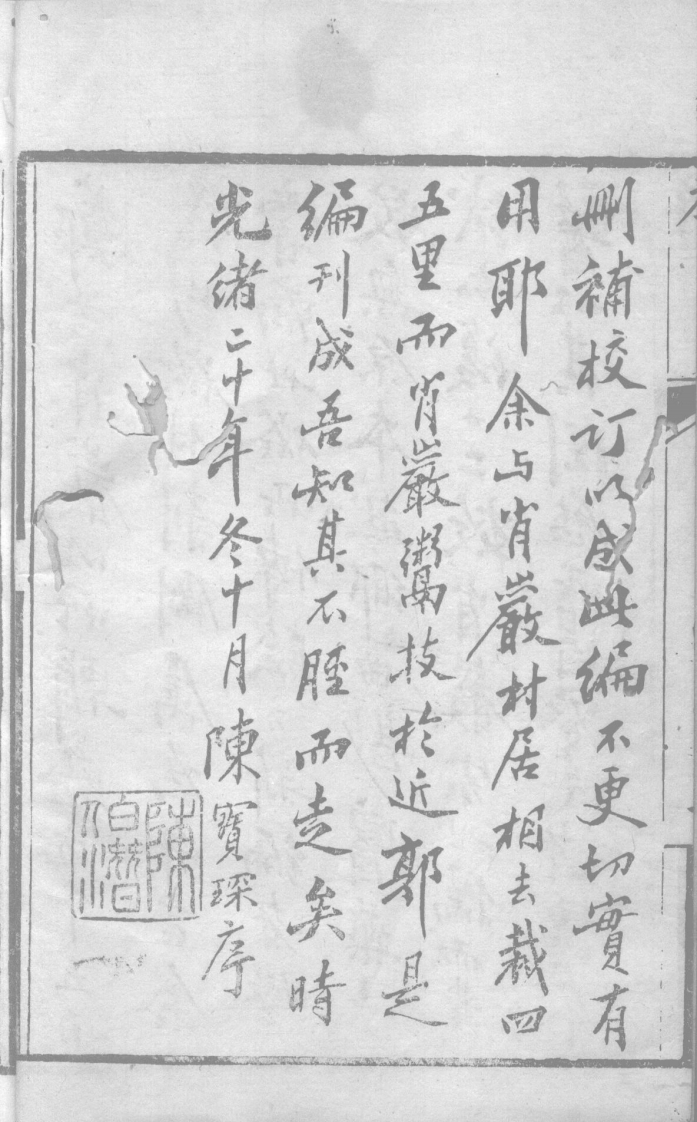 刪補校訂以成此編不更切實有
用耶余与肖巖村居相去裁四
五里而肖巖鬻技於近郭是
編刊成吾知其不脛而走矣時
光緒二十年冬十月陳寶琛序
陳伯潛